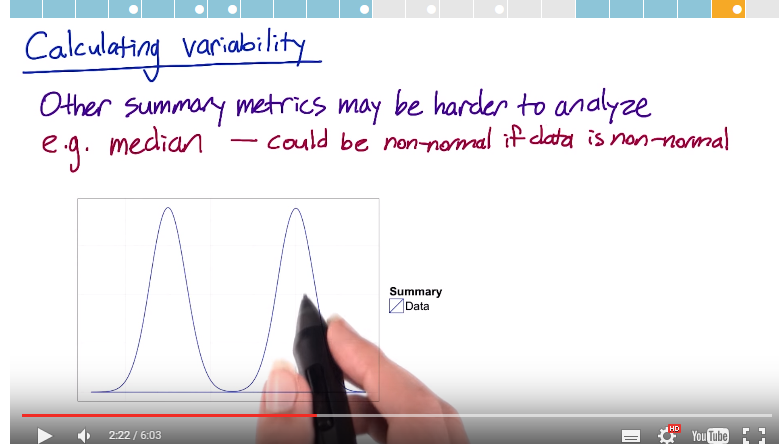 Calculating variability
Other summary metrics may be harder to analyze
e.g. median — could be non-normal if data is non-normal
Summary
Data
2:22 / 6:03
HD
YouTube